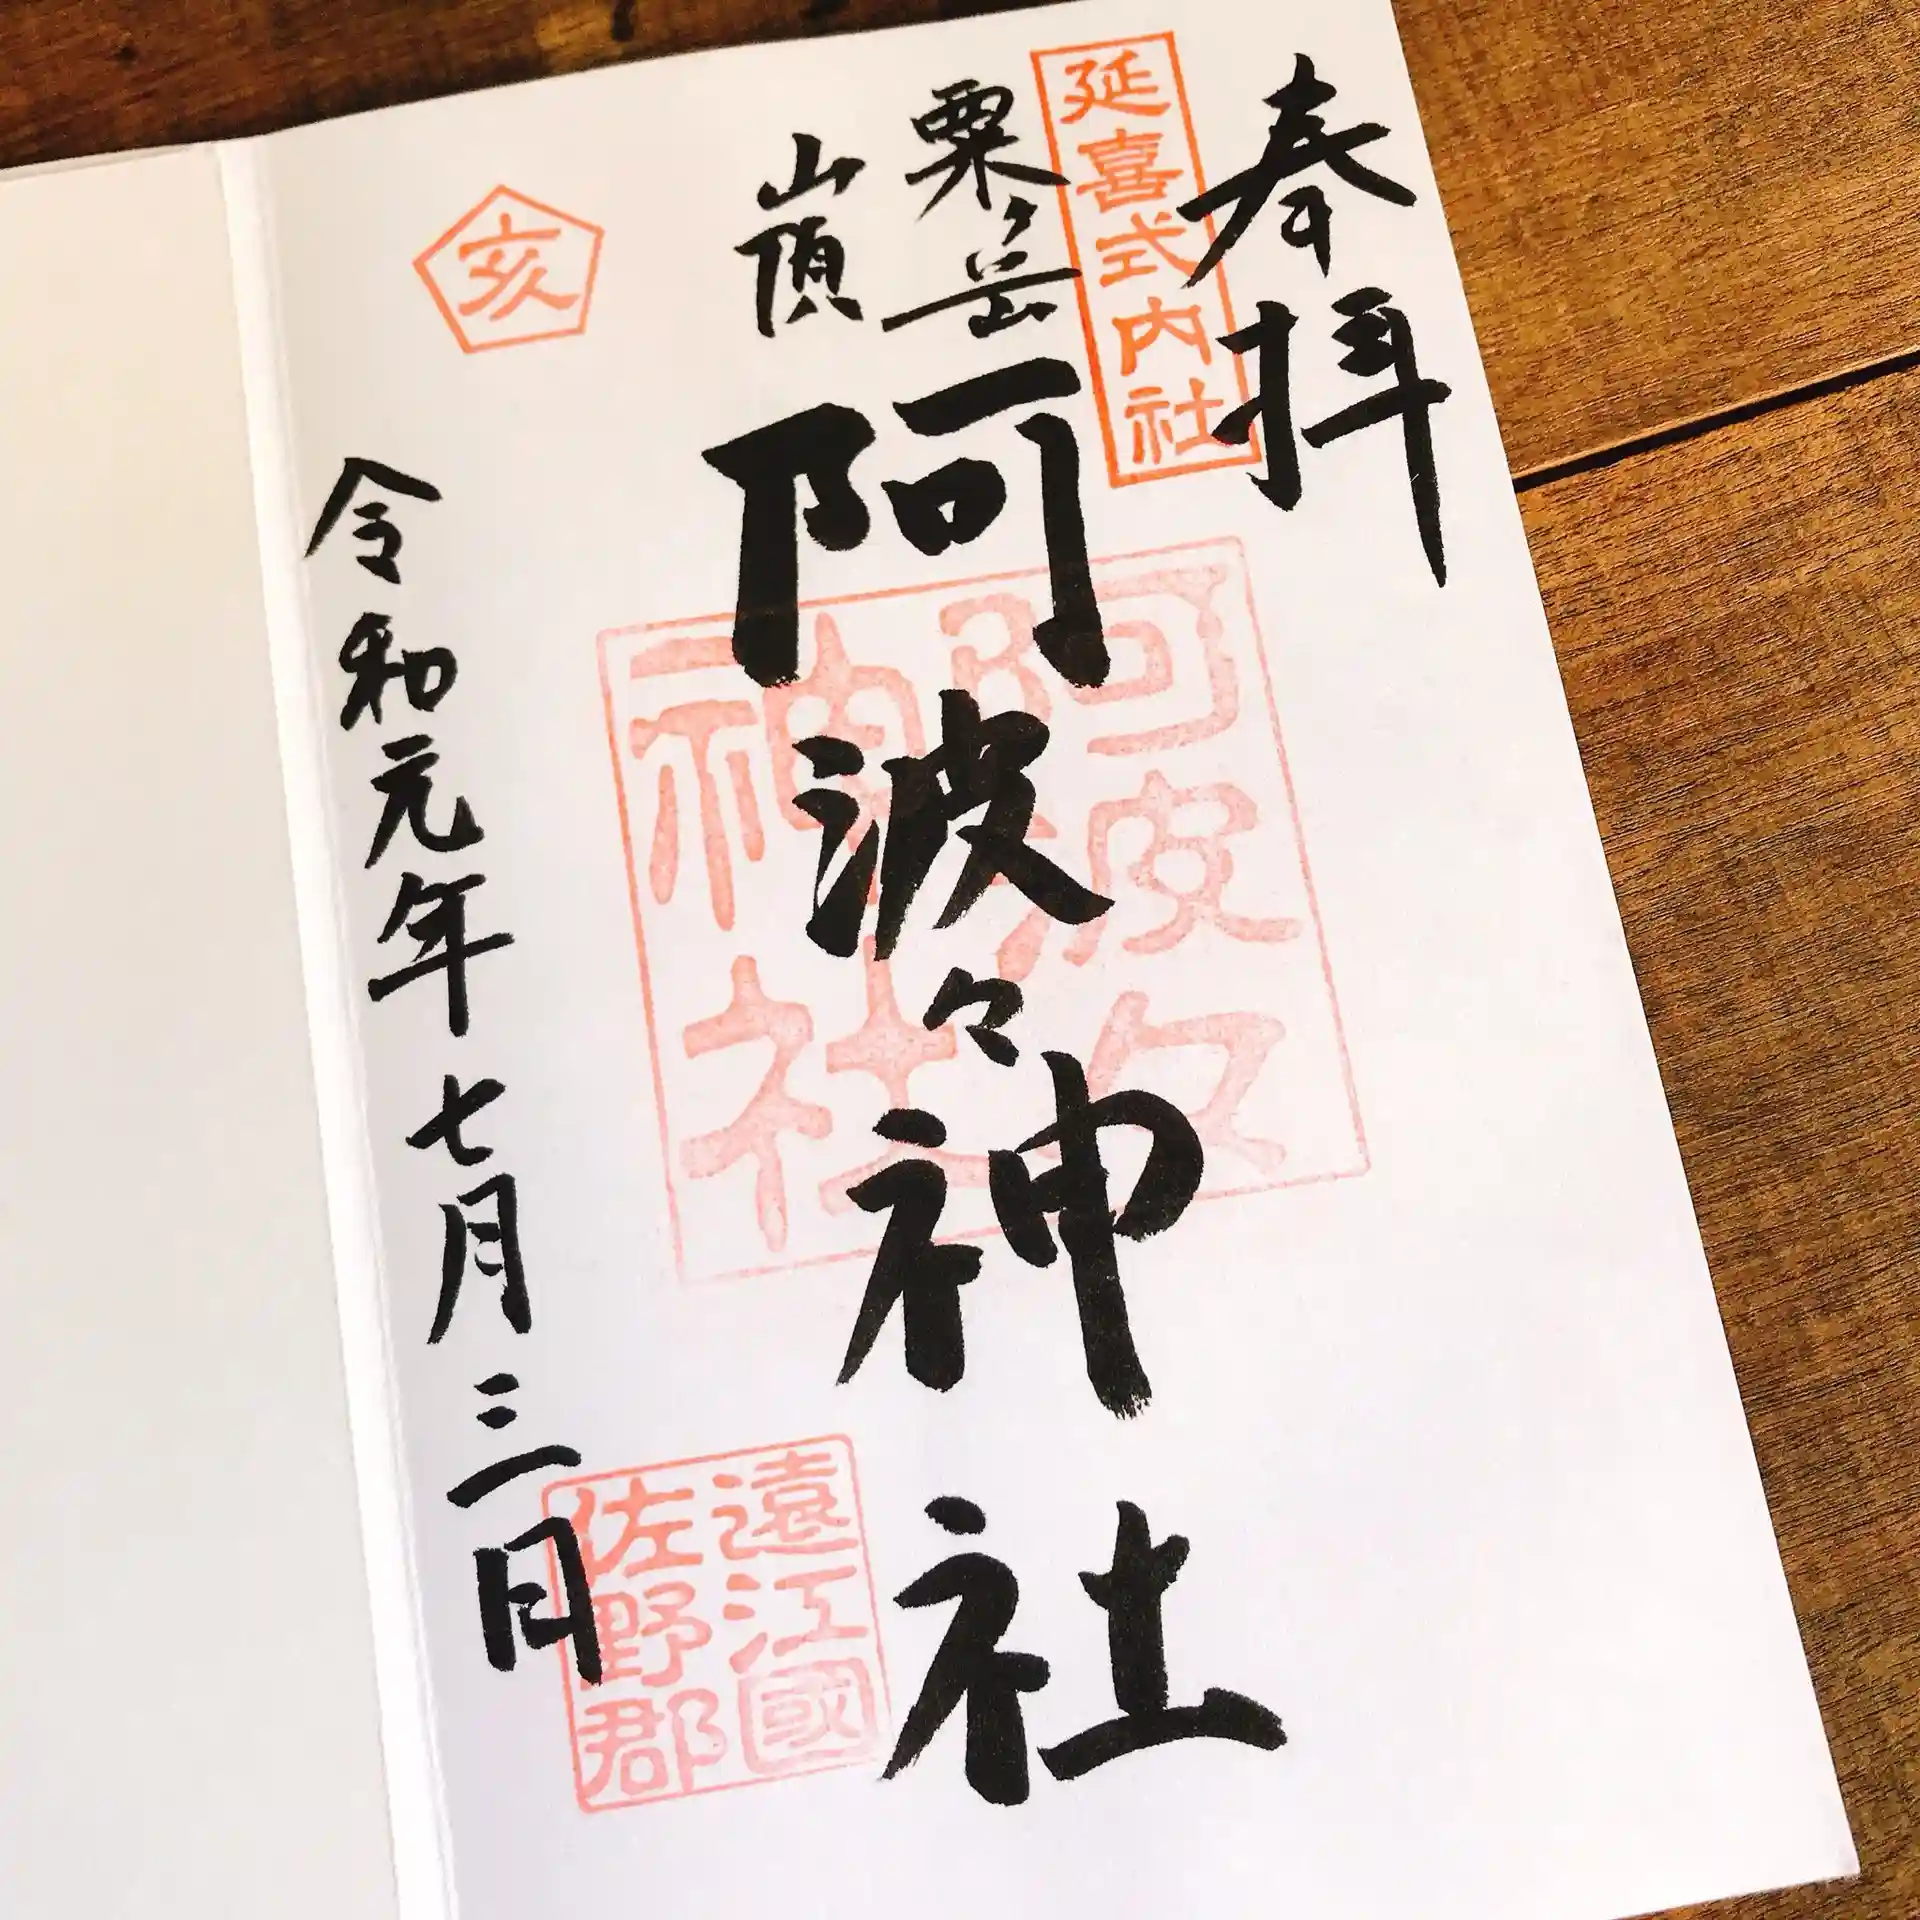 奉拝
延喜式内社
粟ヶ岳
山頂
阿波々神社
阿波々
神社
遠江國
佐野郡
亥
令和元年七月三日